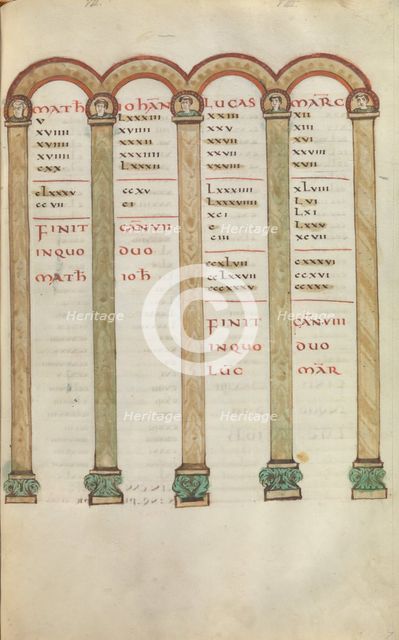 VII
VIII
MATH
V
XVIIII
XVIIII
XVIIII
CXX
CLXXXV
CCVII
FINIT
INQUO
MATH
IOHAN
LXXXIII
XVIIII
XXXII
XXXIIII
LXXXII
CCXV
CI
CANVII
DUO
IOH
LUCAS
XXIII
XXV
XXVII
XXVIII
LXXXIIII
LXXXVIIII
XCI
C
CIII
CCXLVII
CCLXXVII
CCCXXXV
FINIT
INQUO
LUC
MARC
XII
XIII
XVI
XXVIII
XVII
XLVIII
LVI
LXI
LXXV
XCVII
CXXXVI
CCXVI
CCXXX
CANVIII
DUO
MAR
Heritage
Heritage
Heritage
Heritage
Heritage
Heritage
©